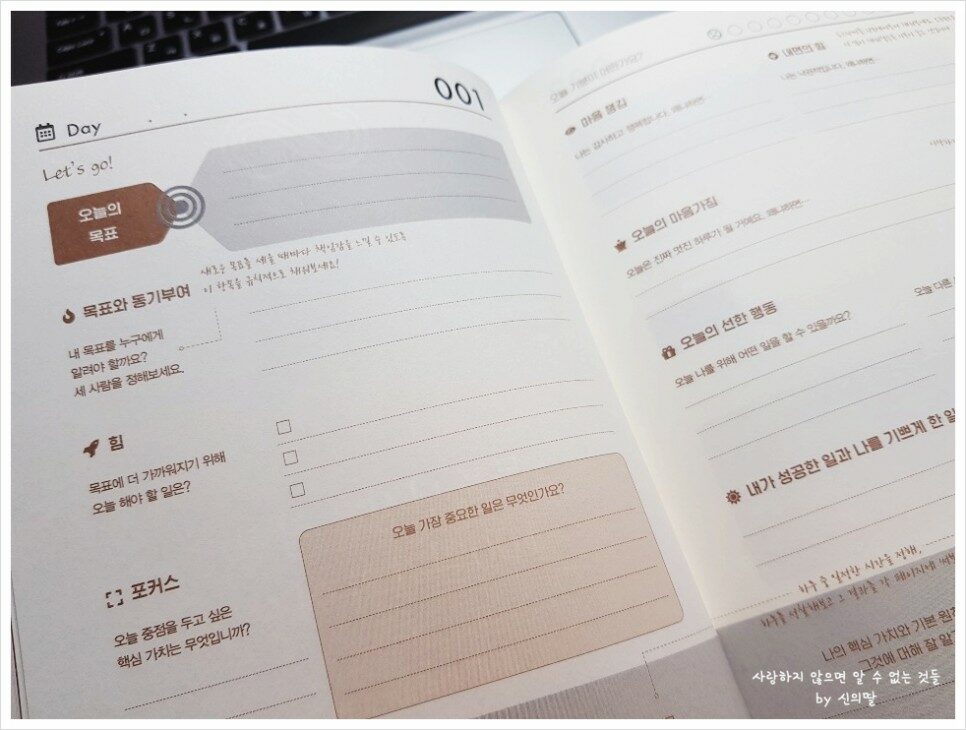 001
Day
Let's go!
오늘의
목표
새로운 목표를 세울 때마다 책임감을 느낄 수 있도록
이 항목을 규칙적으로 채워보세요!
목표와 동기부여
내 목표를 누구에게
알려야 할까요?
세 사람을 정해보세요.
힘
목표에 더 가까워지기 위해
오늘 해야 할 일은?
오늘 가장 중요한 일은 무엇인가요?
포커스
오늘 중점을 두고 싶은
핵심 가치는 무엇입니까?
오늘 기분이 어떤가요?
내면의 힘
마음 챙김
나는 감사하고 행복합니다. 왜냐하면…
오늘의 마음가짐
오늘은 진짜 멋진 하루가 될 거예요. 왜냐하면…
오늘의 선한 행동
오늘 다른
오늘 나를 위해 어떤 일을 할 수 있을까요?
내가 성공한 일과 나를 기쁘게 한 일
하루 중 일정한 시간을 정해,
나의 핵심 가치와 기본 원
그것에 대해 잘 알
사랑하지 않으면 알 수 없는 것들
by 신의딸